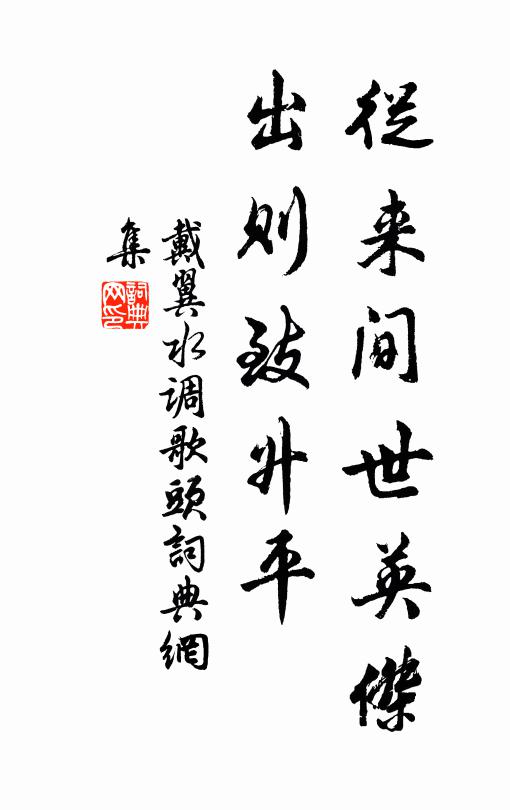 従来间世英傑
出则致升平
戴翼水调歌頭詞典網
集
詞典网印